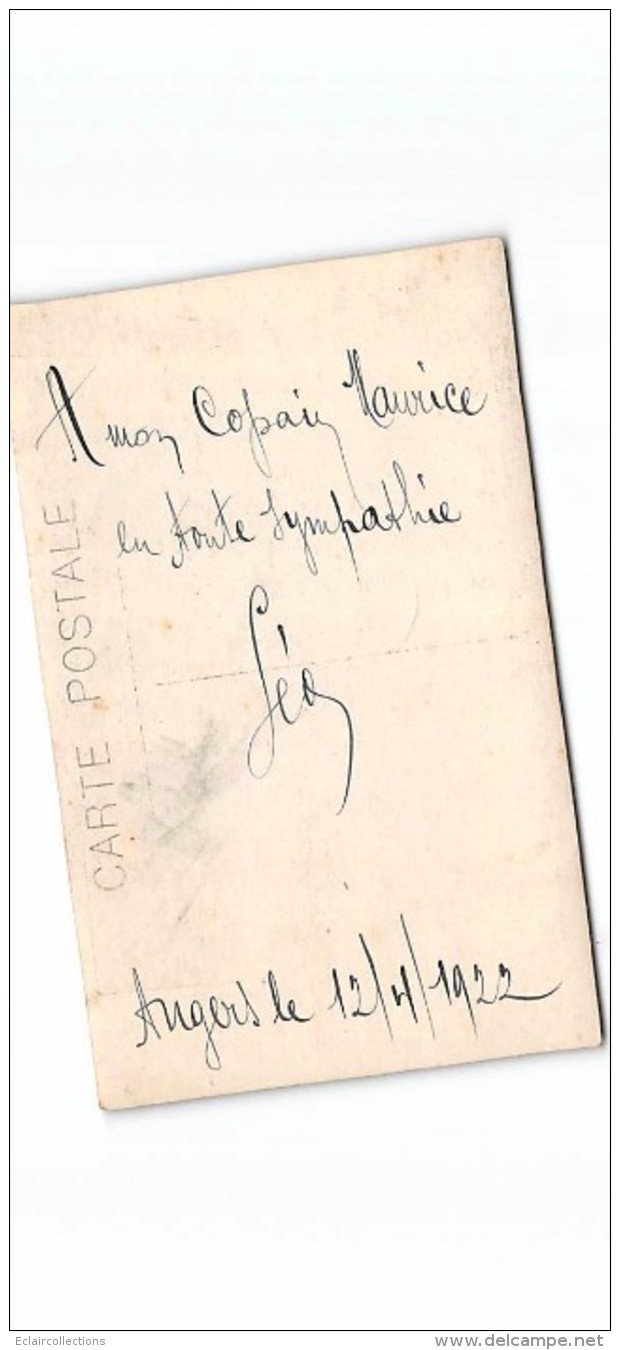 A mon Copain Maurice
en toute Sympathie
Géo
Angers le 12/4/1922
CARTE POSTALE
Eclaircollections
www.delcampe.net